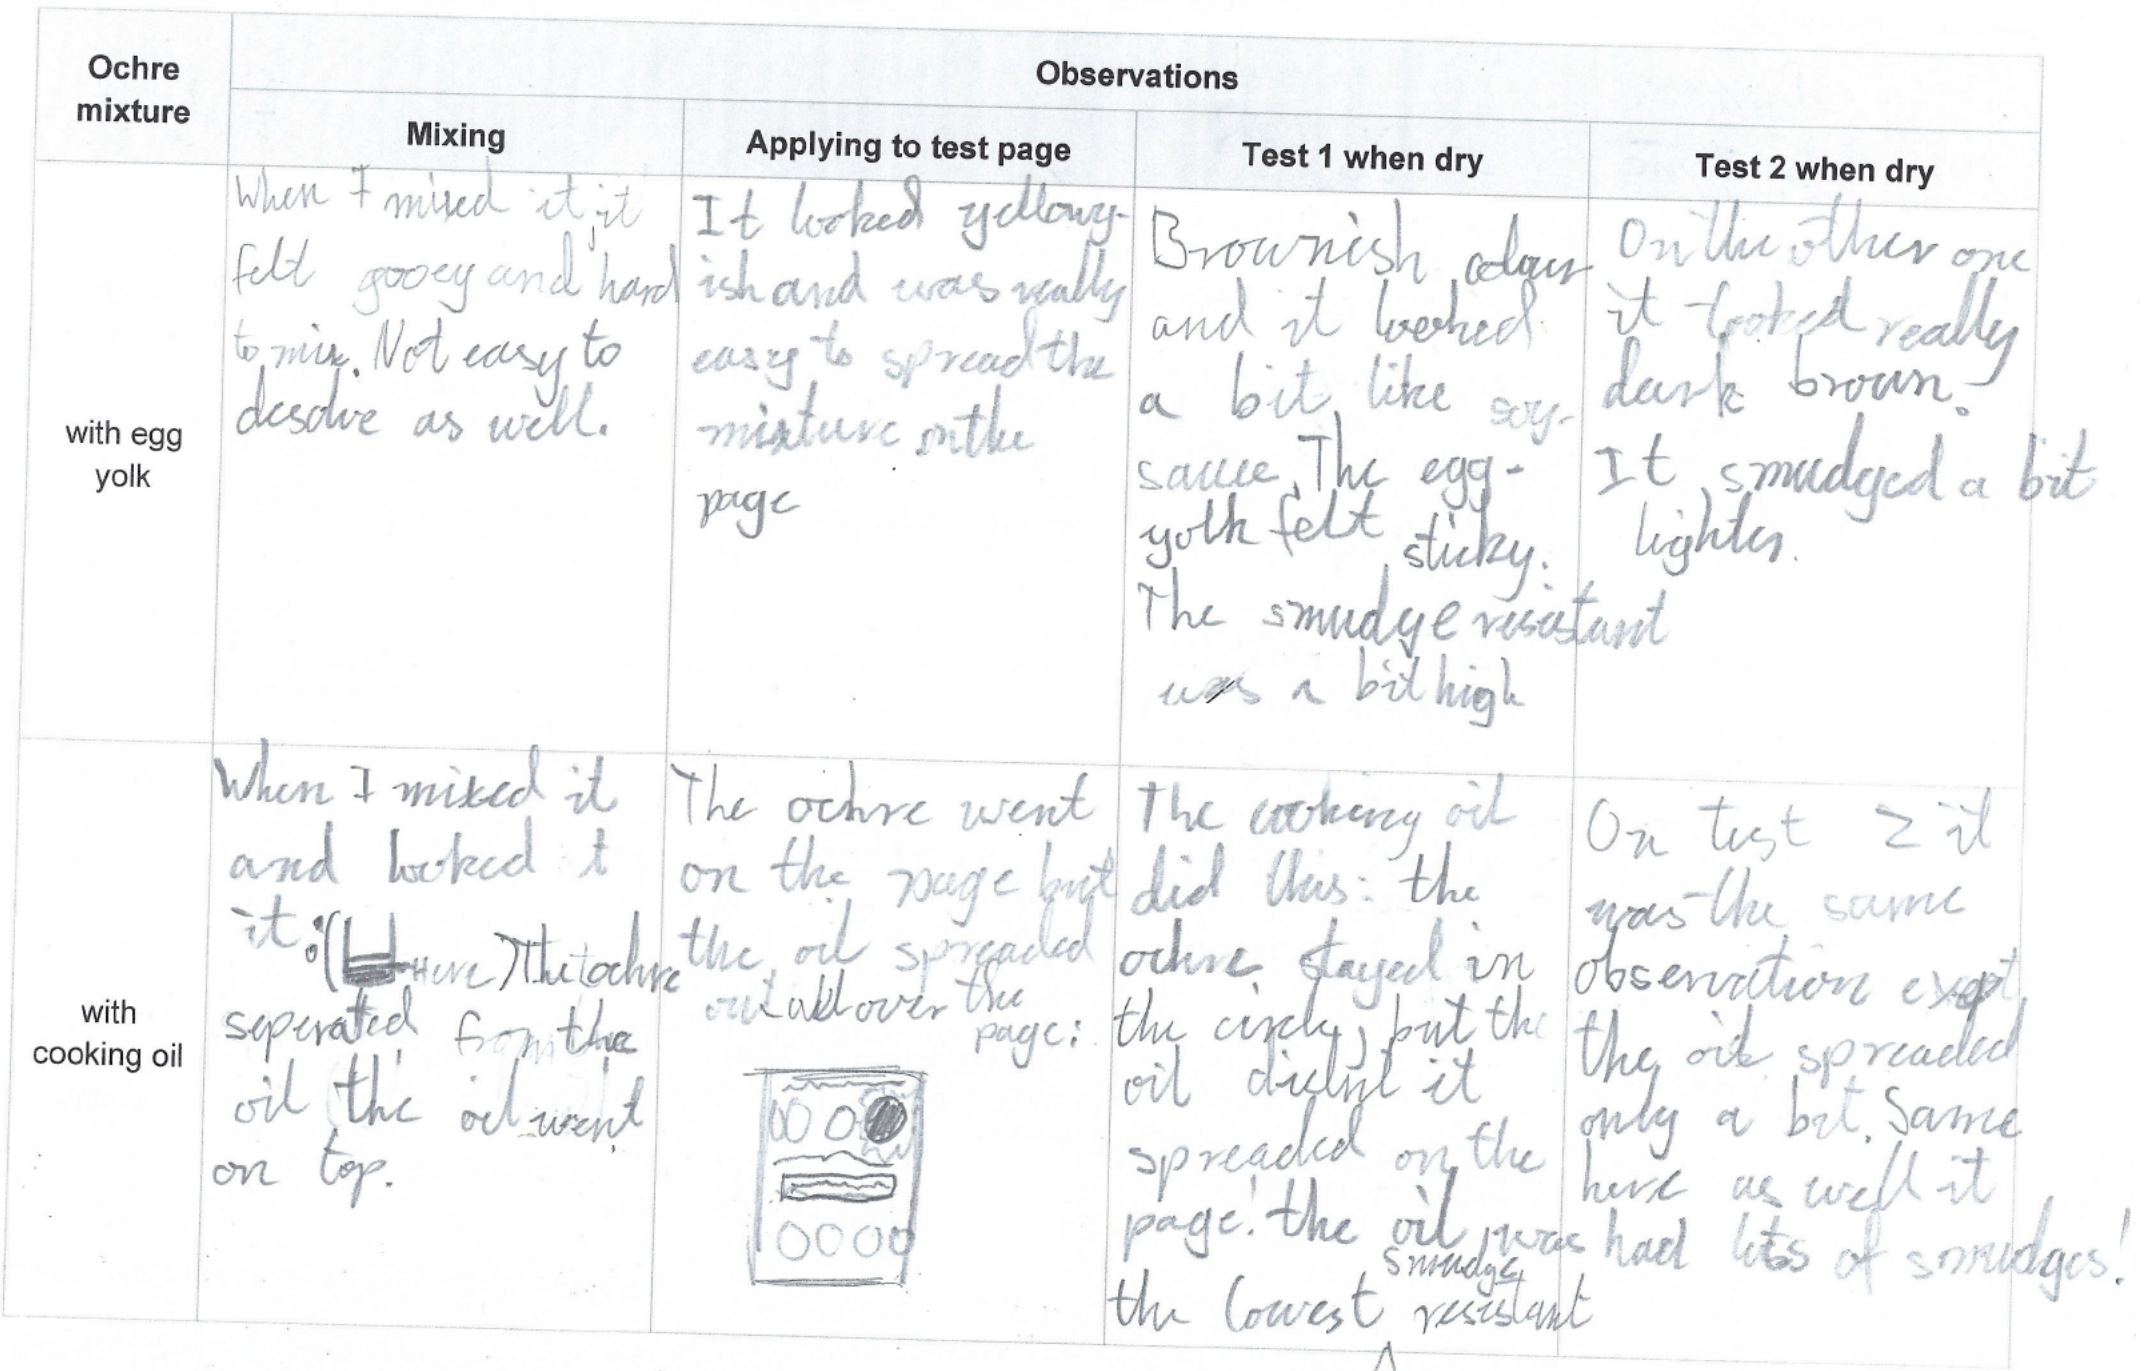 Ochre
mixture
Observations
Mixing
Applying to test page
Test 1 when dry
Test 2 when dry
with egg
yolk
When I mixed it, it
felt gooey and hard
to mix. Not easy to
desolve as well.
It looked yellowy-
ish and was really
easy to spread the
mixture on the
page
Brownish colour
and it looked
a bit like soy-
sauce. The egg-
yolk felt sticky.
The smudge resistant
was a bit high
On the other one
it looked really
dark brown.
It smudged a bit
lighter.
with
cooking oil
When I mixed it
and looked t
it: (Here) The ochre
seperated from the
oil the oil went
on top.
The ochre went
on the page but
the oil spreaded
out all over the
page:
The cooking oil
did this: the
ochre stayed in
the circle, but the
oil didnt it
spreaded on the
page! the oil was
the lowest smudge
resistant
On test 2 it
was the same
observation exept
the oil spreaded
only a bit. Same
here as well it
had lots of smudges!